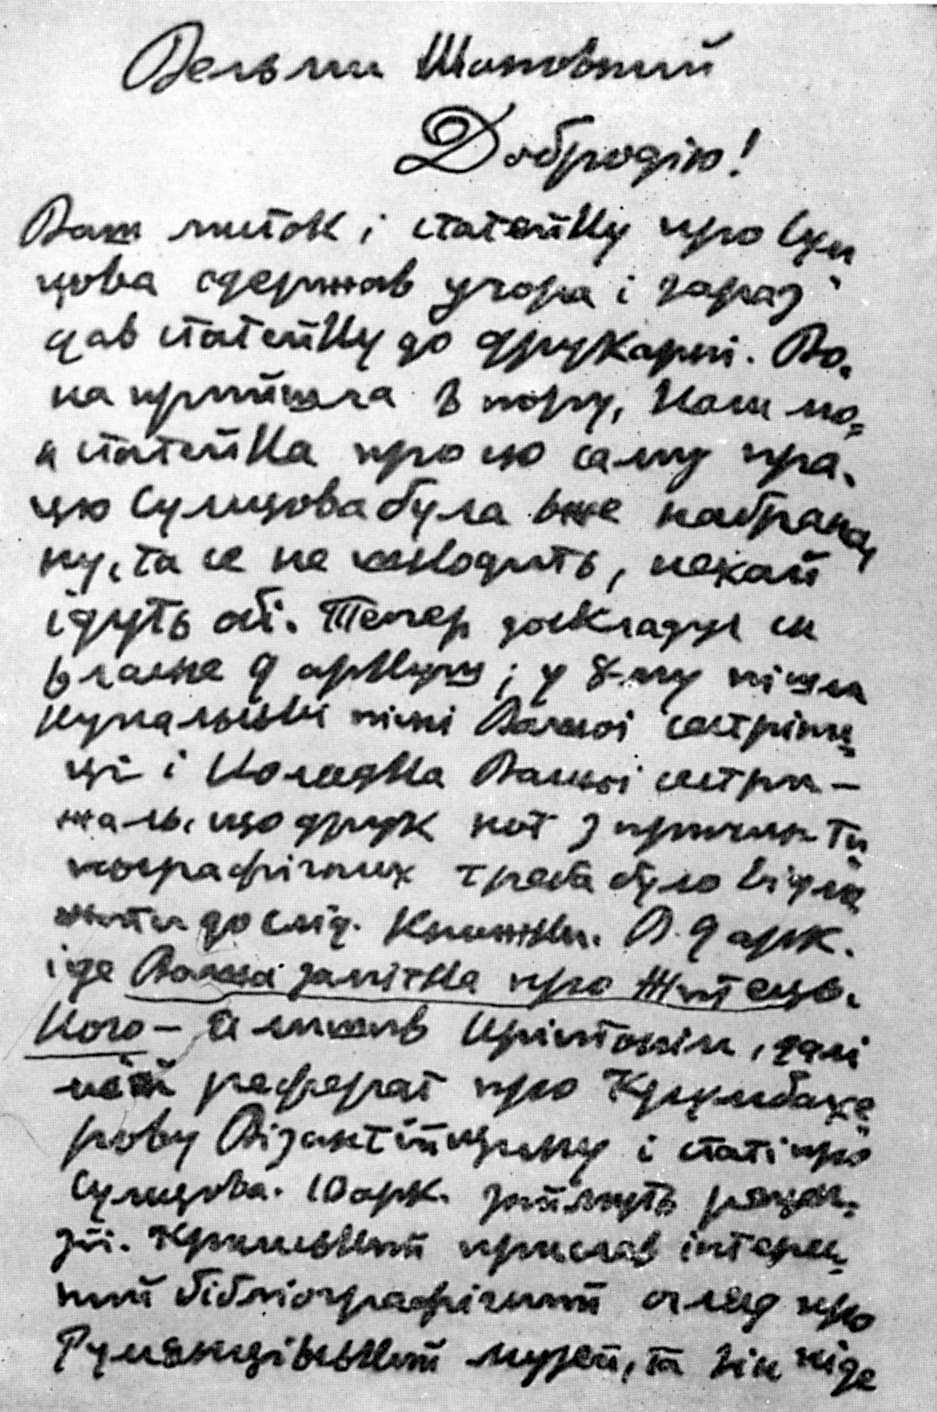 Вельми Шановний
Добродію!
Ваш листок і статейку про Сум
цова одержав учора і зараз
дав статейку до друкарні. Во-
на прийшла в пору, коли мо-
я статейка про ту саму пра-
цю Сумцова була вже набрана,
ну, та се не шкодить, нехай
ідуть обі. Тепер докладую си
власне 9 аркуш; у 8-му пішли
купальські пісні Вашої сестріни-
ці і Колядка Вашої сестри —
жаль, що друк нот з причин ти
пографічних треба було відло
жити до слід. книжки. В 9 арк.
іде Ваша замітка про Житець-
кого — Ялишів Кріптонім, далі
мій реферат про Крумбахе
рову Візантійщину і статі про
Сумцова. 10 арк. займуть рецен-
зії. Кримський прислав інтерес-
ний бібліографічний огляд про
Румянцівський музей, та він піде